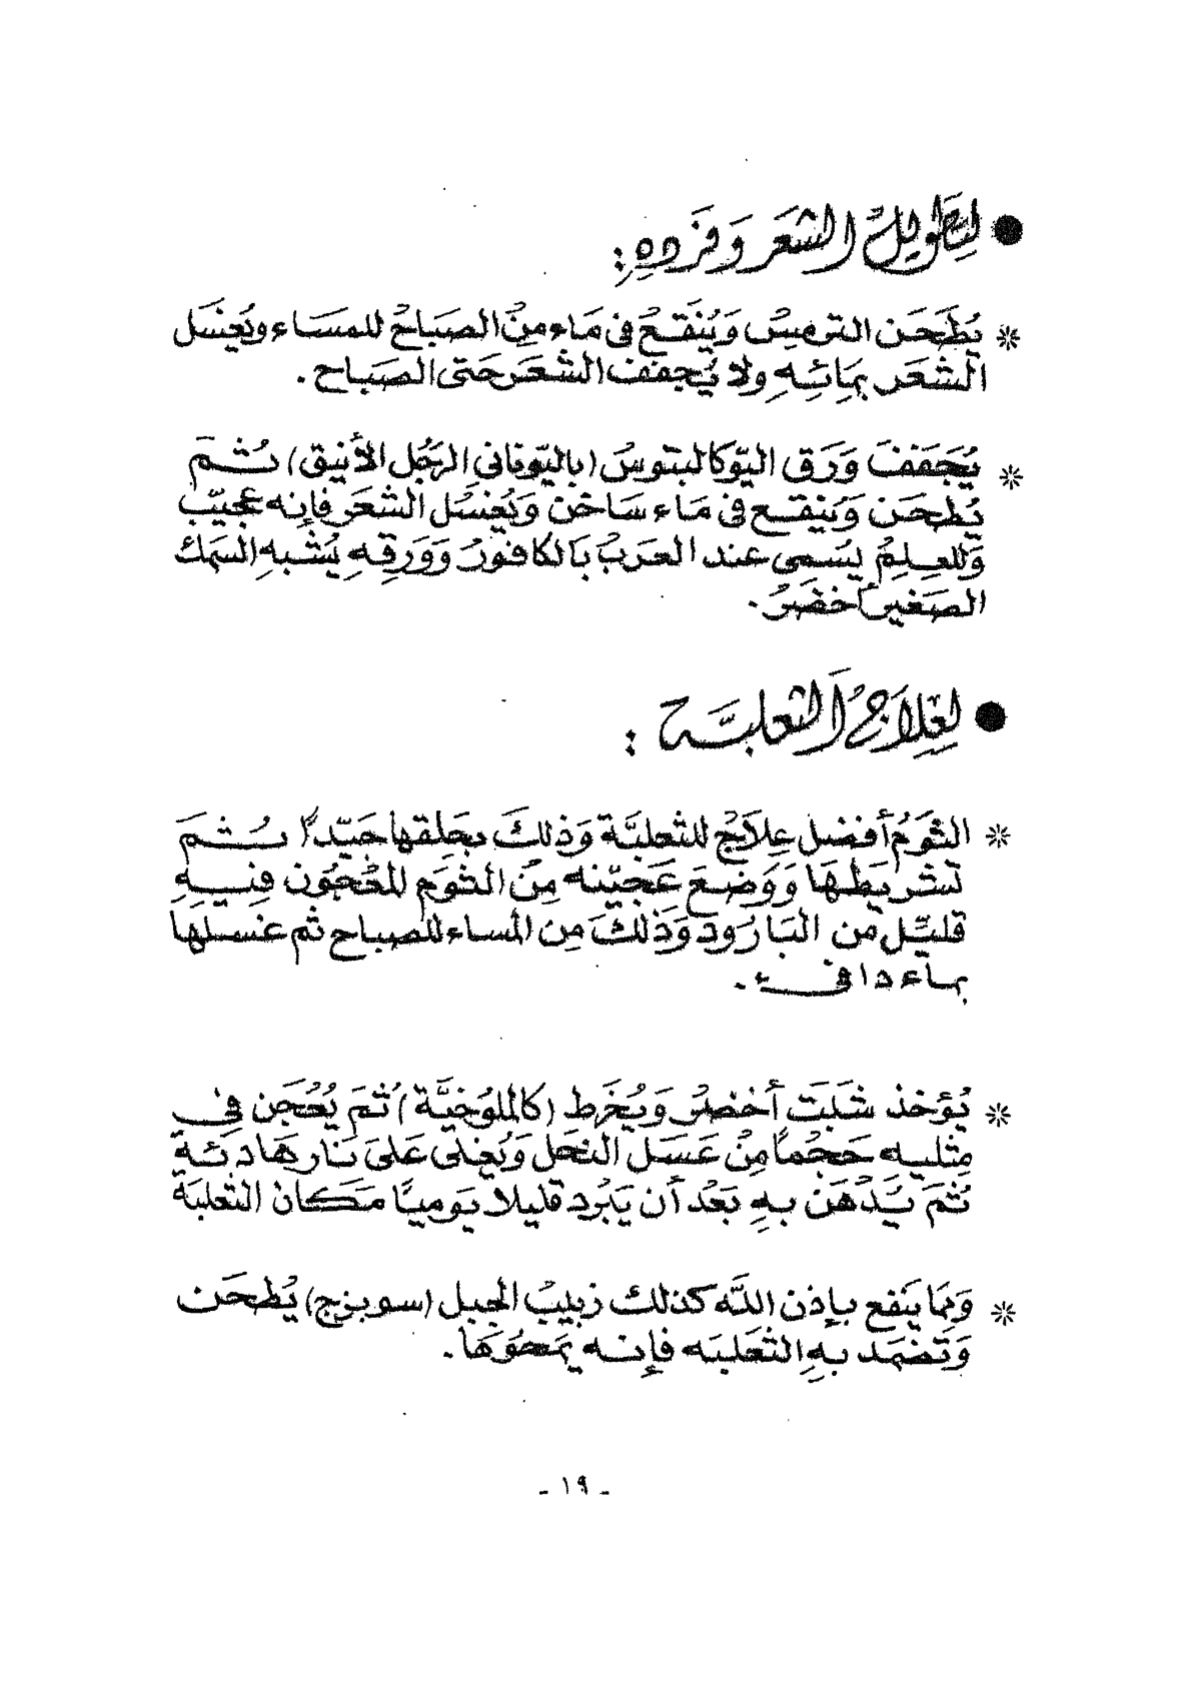 ● لتطويل الشعَر وَفَردهِ :
* يُطَحَن الترمس وَيُنقَعْ فى مَاء مِنْ الصبَاحْ للمسَاء ويُغسَل
الشعَر بمَائِهِ ولا يُجفف الشعَر حَتى الصبَاح .
* يُجَففَ وَرَق اليوكالبتوسْ (باليوناني الرجُل الأنيق) ثُم
يُطحَن وَيُنقع فى مَاء سَاخن وَيُغسُل الشعَر فإنه عجيبْ
وَللعِلمُ يسَمى عند العَربْ بَالكافورْ وَوَرقِهِ يُشبهِ السَمك
الصَغير أخضَرْ .
● لعِلاجُ الثعلبَة :
* الثَومُ أفضل عِلاَجْ للثعلبَّة وَذلكَ بحَلقها جَيّداً ثُم
تشريطهَا وَوَضعَ عَجيّنه مِنْ الثَوم المعْجُون فِيهِ
قليّل من البَارُود وَذلكَ مِن المساء للصباح ثم غسلها
بماء دافىء .
* يُؤخذ شَبَت أخضرْ وَيُخَرط (كالملوُخيَّة) ثُمَ يُعْجَن فى
مِثليه حَجْماً مِنْ عَسَل النحَل وَيُغلى عَلىَ نَار هَادئة
ثُمَ يَدْهَن بهِ بَعْد أن يَبْرد قليلا يَوميًا مَكان الثعلبَة
* وَمما يَنفع بإذن اللَّه كذلك زبيبْ الجبل (سوبزج) يُطحَن
وَتضمَد بهِ الثعَلبَه فإنه يَمحُوَهَا .
- ١٩ -